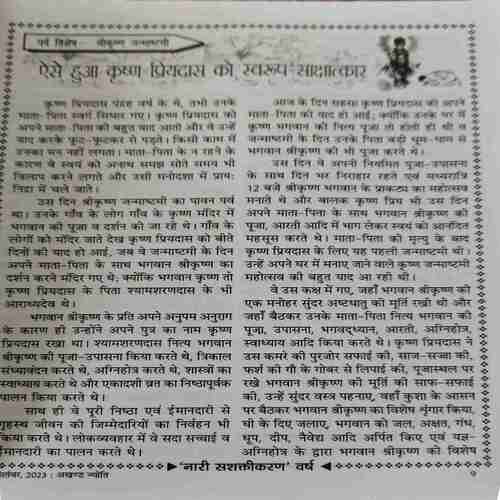 पर्व विशेष— श्रीकृष्ण जन्माष्टमी
ऐसे हुआ कृष्ण प्रियदास को स्वरूप साक्षात्कार
कृष्ण प्रियदास पंद्रह वर्ष के थे, तभी उनके
माता-पिता स्वर्ग सिधार गए। कृष्ण प्रियदास को
अपने माता-पिता की बहुत याद आती और वे उन्हें
याद करके फूट-फूटकर रो पड़ते। किसी काम में
उनका मन नहीं लगता। माता-पिता के न रहने के
कारण वे स्वयं को अनाथ समझ सोते समय भी
विलाप करने लगते और उसी मनोदशा में प्राय:
निद्रा में चले जाते।
उस दिन श्रीकृष्ण जन्माष्टमी का पावन पर्व
था। उनके गाँव के लोग गाँव के कृष्ण मंदिर में
भगवान की पूजा व दर्शन को जा रहे थे। गाँव के
लोगों को मंदिर जाते देख कृष्ण प्रियदास को बीते
दिनों की याद हो आई, जब वे जन्माष्टमी के दिन
अपने माता-पिता के साथ भगवान श्रीकृष्ण का
दर्शन करने मंदिर गए थे; क्योंकि भगवान कृष्ण तो
कृष्ण प्रियदास के पिता श्यामशरणदास के भी
आराध्यदेव थे।
भगवान श्रीकृष्ण के प्रति अपने अनुपम अनुराग
के कारण ही उन्होंने अपने पुत्र का नाम कृष्ण
प्रियदास रखा था। श्यामशरणदास नित्य भगवान
श्रीकृष्ण की पूजा-उपासना किया करते थे, त्रिकाल
संध्यावंदन करते थे, अग्निहोत्र करते थे, शास्त्रों का
स्वाध्याय करते थे और एकादशी व्रत का निष्ठापूर्वक
पालन किया करते थे।
साथ ही वे पूरी निष्ठा एवं ईमानदारी से
गृहस्थ जीवन की जिम्मेदारियों का निर्वहन भी
किया करते थे। लोकव्यवहार में वे सदा सच्चाई व
ईमानदारी का पालन करते थे।
आज के दिन सहसा कृष्ण प्रियदास को अपने
माता-पिता की याद हो आई; क्योंकि उनके घर में
कृष्ण भगवान की नित्य पूजा तो होती ही थी व
जन्माष्टमी के दिन उनके पिता बड़ी धूम-धाम से
भगवान श्रीकृष्ण की भी पूजा करते थे।
उस दिन वे अपनी नियमित पूजा-उपासना
के साथ दिन भर निराहार रहते एवं मध्यरात्रि
12 बजे श्रीकृष्ण भगवान के प्राकट्य का महोत्सव
मनाते थे और बालक कृष्ण प्रिय भी उस दिन
अपने माता-पिता के साथ भगवान श्रीकृष्ण की
पूजा, आरती आदि में भाग लेकर स्वयं को आनंदित
महसूस करते थे। माता-पिता की मृत्यु के बाद
कृष्ण प्रियदास के लिए यह पहली जन्माष्टमी थी।
उन्हें अपने घर में मनाए जाने वाले कृष्ण जन्माष्टमी
महोत्सव की बहुत याद आ रही थी।
वे उस कक्ष में गए, जहाँ भगवान श्रीकृष्ण की
एक मनोहर सुंदर अष्टधातु की मूर्ति रखी थी और
जहाँ बैठकर उनके माता-पिता नित्य भगवान की
पूजा, उपासना, भगवद्ध्यान, आरती, अग्निहोत्र,
स्वाध्याय आदि किया करते थे। कृष्ण प्रियदास ने
उस कमरे की पुरजोर सफाई की, साज-सज्जा की,
फर्श की गौ के गोबर से लिपाई की, पूजास्थल पर
रखे भगवान श्रीकृष्ण की मूर्ति की साफ-सफाई
की, उन्हें सुंदर वस्त्र पहनाए, वहाँ कुशा के आसन
पर बैठकर भगवान श्रीकृष्ण का विशेष शृंगार किया,
घी के दिए जलाए, भगवान को जल, अक्षत, गंध,
धूप, दीप, नैवेद्य आदि अर्पित किए एवं यज्ञ-
अग्निहोत्र के द्वारा भगवान श्रीकृष्ण की विशेष
'नारी सशक्तीकरण' वर्ष
सितंबर, 2023 : अखण्ड ज्योति